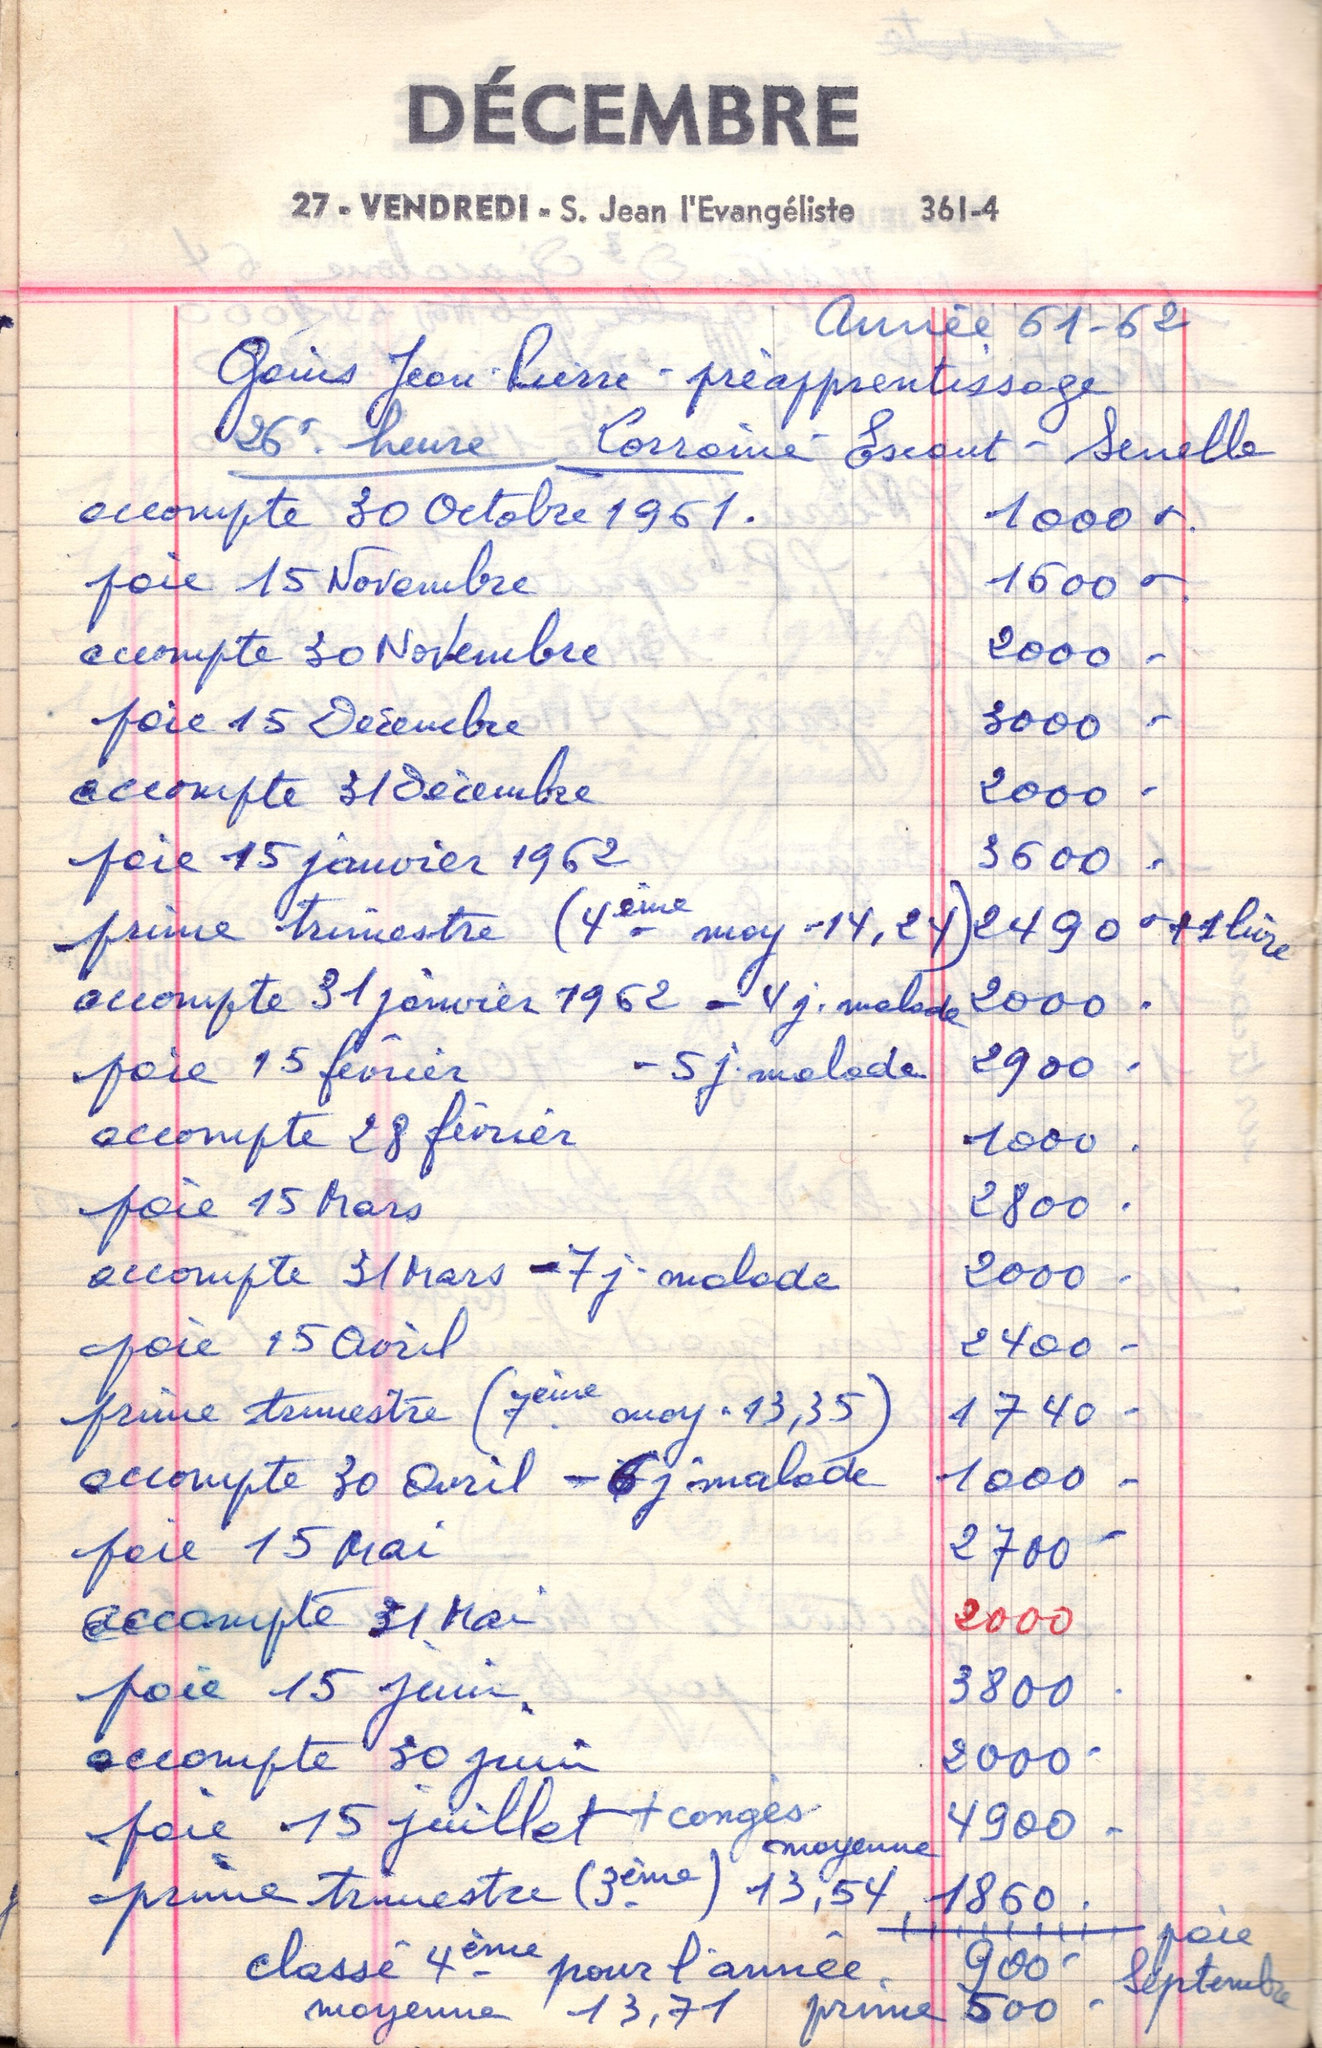 DÉCEMBRE
27 - VENDREDI - S. Jean l'Evangéliste 361-4
Année 61-62
Gains Jean-Pierre - préapprentissage
26F heure Lorraine Escaut - Senelle
accompte 30 Octobre 1961. 1000 F.
paie 15 Novembre 1600 F.
accompte 30 Novembre 2000 -
paie 15 Décembre 3000 -
accompte 31 Décembre 2000 -
paie 15 janvier 1962 3600 -
prime trimestre (4ème moy - 14,24) 2490 - + 1 livre
accompte 31 janvier 1962 - 4 j. malade 2000 .
paie 15 février - 5 j. malade 2900 .
accompte 28 février 1000 .
paie 15 Mars 2800 .
accompte 31 Mars - 7 j. malade 2000 -
paie 15 Avril 2400 -
prime trimestre (7ème moy. 13,35) 1740 -
accompte 30 Avril - 6 j. malade 1000 -
paie 15 Mai 2700 -
accompte 31 Mai 2000
paie 15 juin. 3800 .
accompte 30 juin 2000 -
paie 15 juillet + congés 4900 -
prime trimestre (3ème) moyenne 13,54 1860 .
classé 4ème pour l'année. 900 - paie Septembre
moyenne 13,71 prime 500 -